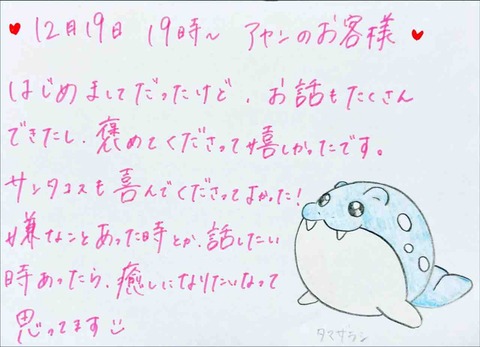 ♥ 12月19日 19時〜 アヤンのお客様 ♥
はじめましてだったけど、お話もたくさん
できたし、褒めてくださって嬉しかったです。
サンタコスも喜んでくださってよかった!
嫌なことあった時とか、話したい
時あったら、癒しになりたいなって
思ってます☺
タマザラシ